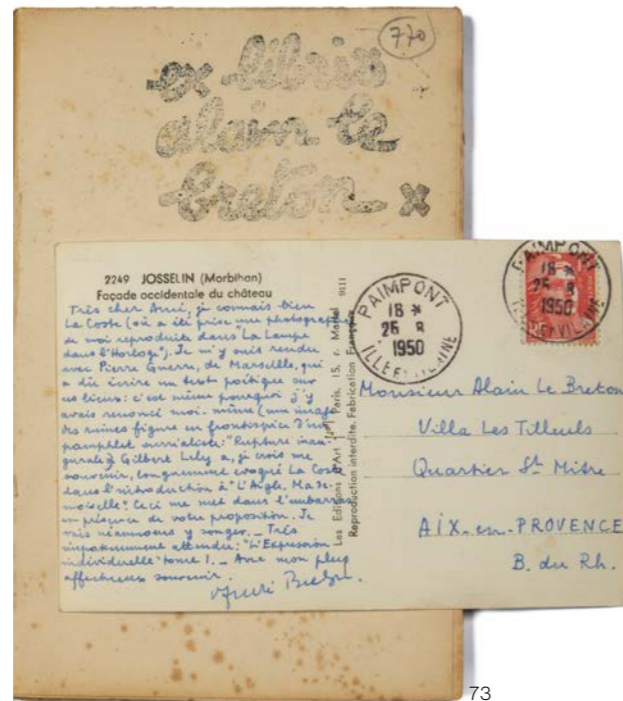 770
ex libris
alain le
breton x
2249 JOSSELIN (Morbihan)
Façade occidentale du château
Très cher Ami, je connais bien
La Coste (où a été prise une photographie
de moi reproduite dans "La Lampe
dans l'Horloge"). Je m'y suis rendu
avec Pierre Guerre, de Marseille, qui
a dû écrire un texte poétique sur
ces lieux : c'est même pourquoi j'y
avais renoncé moi-même (une image
des ruines figure en frontispice d'un
pamphlet surréaliste : "Rupture inau-
gurale"). Gilbert Lely a, je crois me
souvenir, longuement évoqué La Coste
dans l'introduction à "L'Aigle, Made-
moiselle". Ceci me met dans l'embarras
en présence de votre proposition. Je
vais néanmoins y songer. _ Très
impatiemment attendu : "L'Expression
individuelle" tome I. _ Avec mon plus
affectueux souvenir.
André Breton
Les Editions d'Art Paris, 15, r. Martel 9111
Reproduction interdite. Fabrication Française
PAIMPONT
18 *
25 8
1950
ILLE ET VILAINE
PAIMPONT
18 *
25 8
1950
ILLE ET VILAINE
Monsieur Alain Le Breton
Villa Les Tilleuls
Quartier St Mitre
AIX-en-PROVENCE
B. du Rh.
73